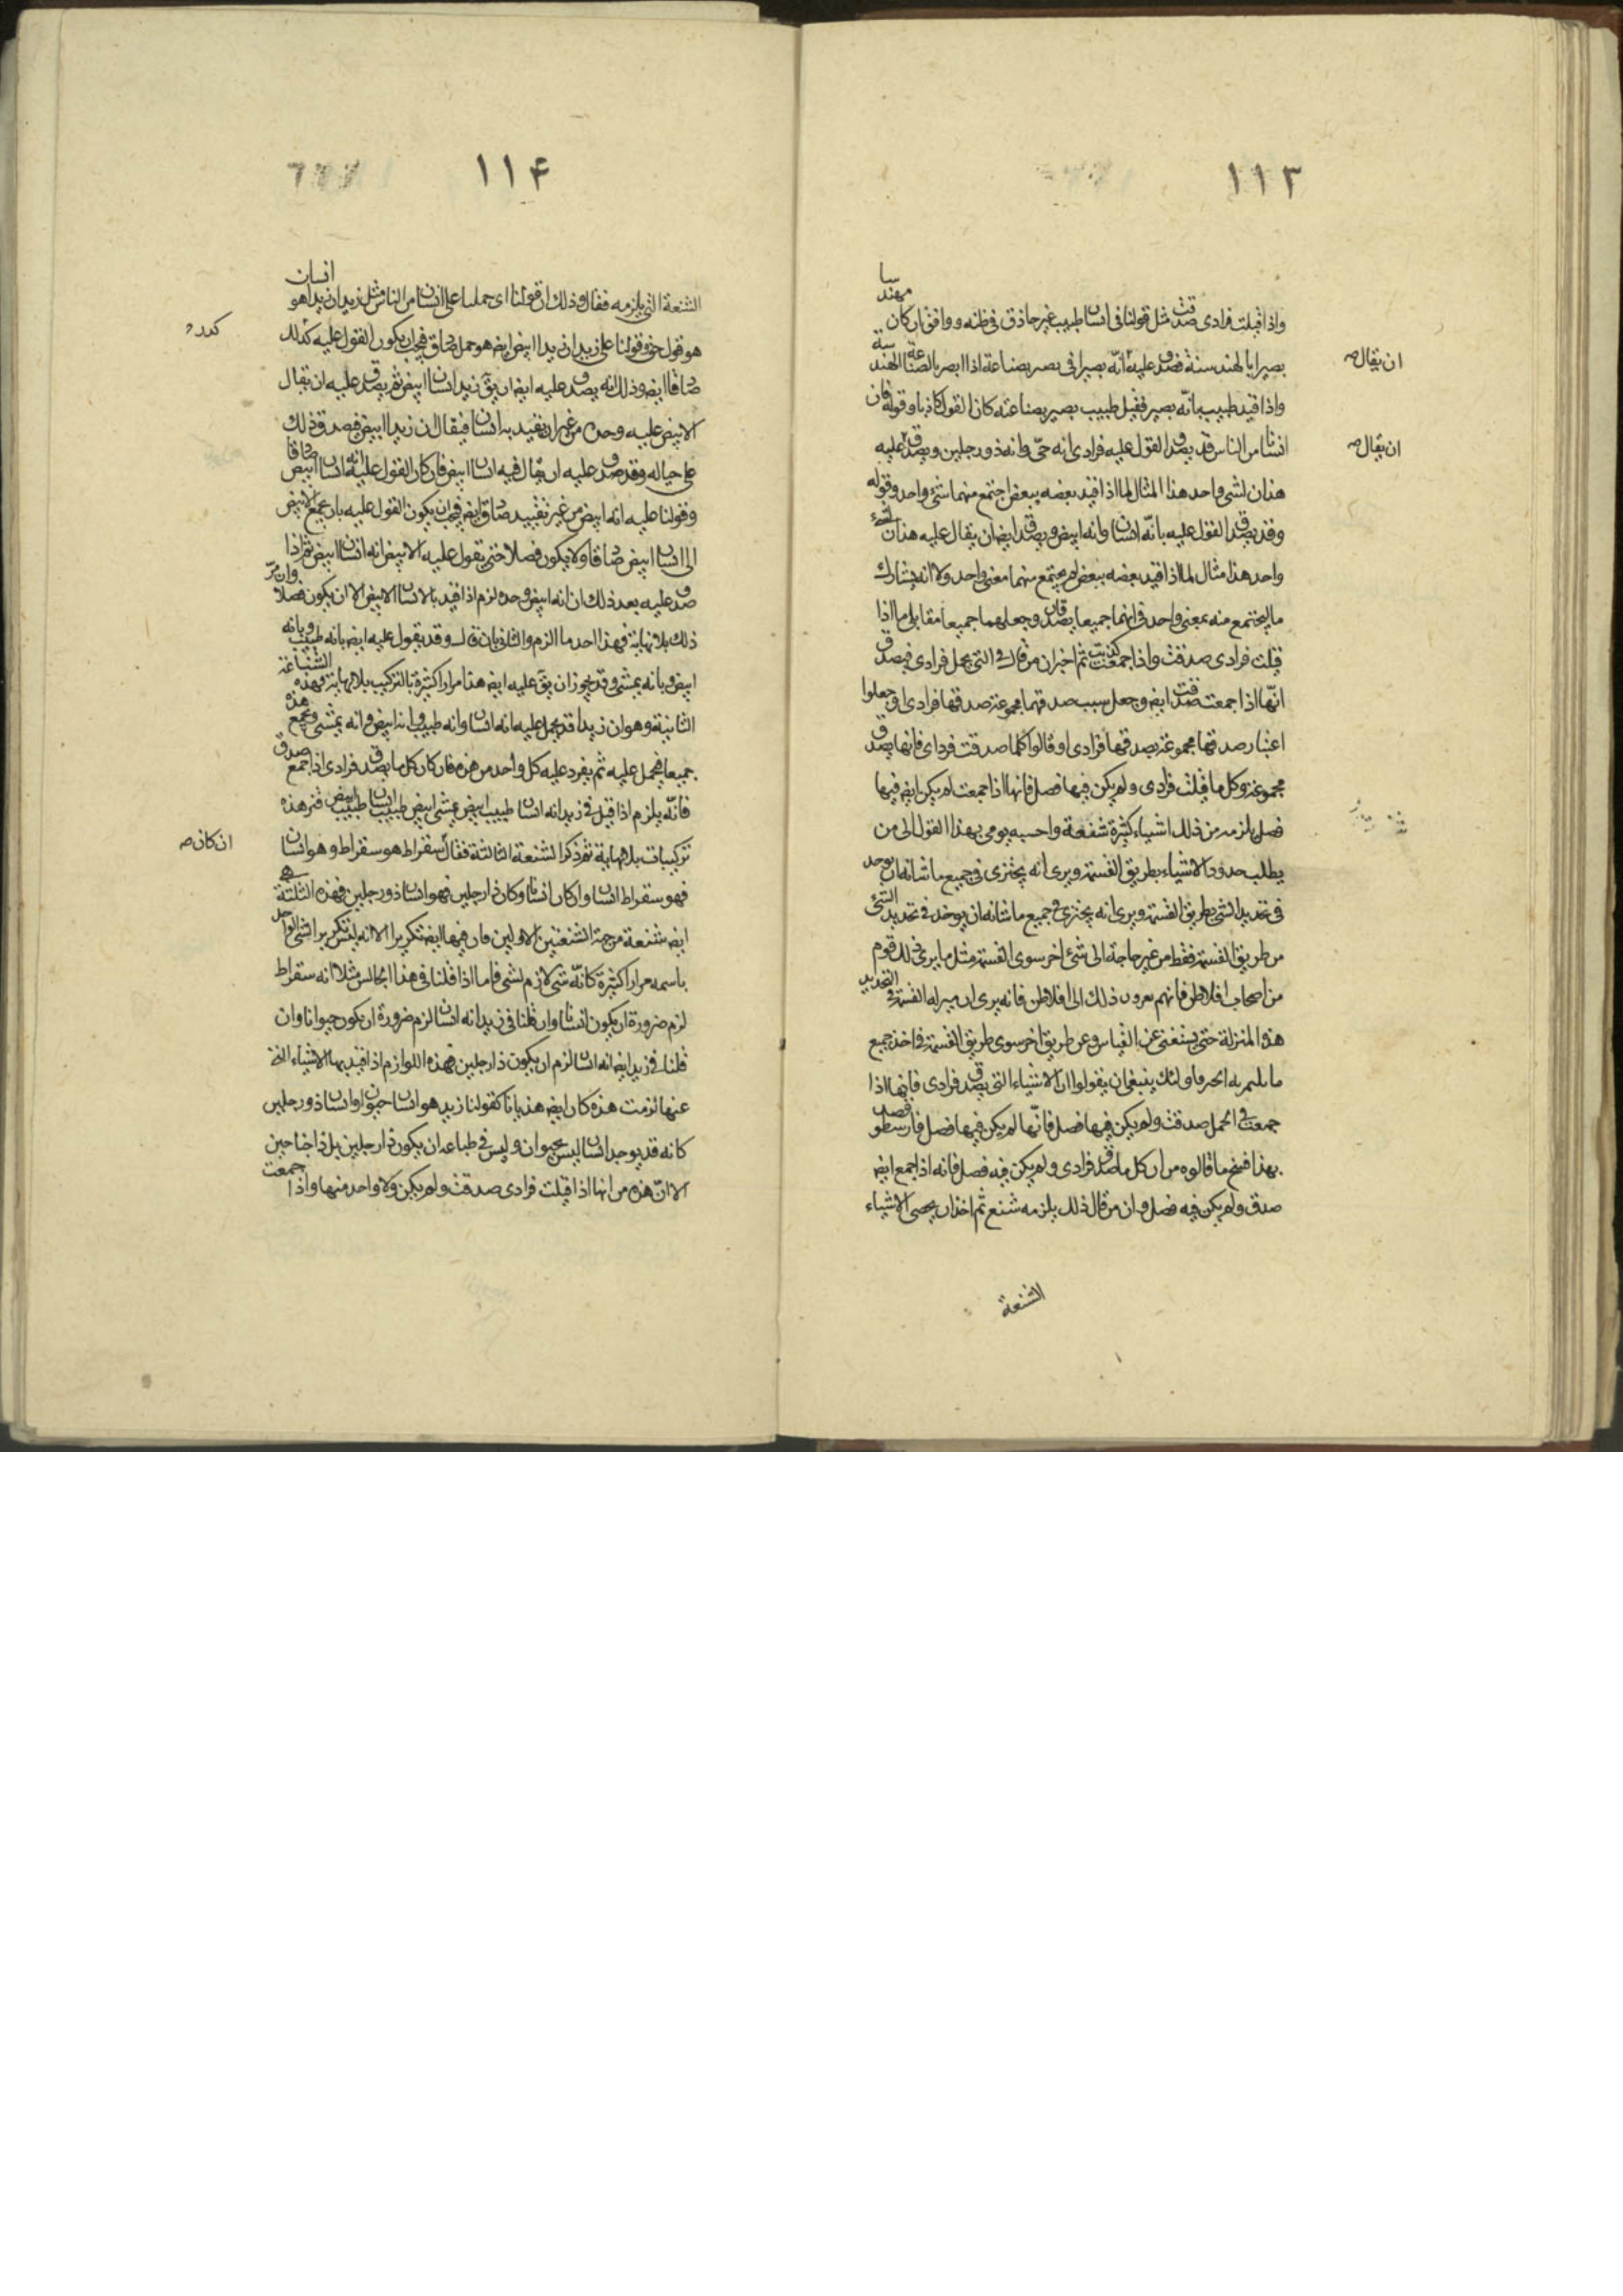 ١١٣
واذا قيلت فرادى صدقت مثل قولنا فى انسان طبيب غير حاذق فى طبه ووافق ان كان مهندسا
بصيرا بالهندسة فصدق عليه انّه بصير اى بصير بصناعة اذا ابصر بالصناعة الهندسة
ان يقال صه
واذا قيد طبيب بانّه بصير فقيل طبيب بصير بصناعته كان القول كاذبا وقوله فان
انسانا من الناس قد يصدق القول عليه فرادى انه حىّ وانه ذو رجلين ويصدق عليه
ان يقال صه
هذان لشى واحد هذا المثال لما اذا قيد بعضه ببعض اجتمع منهما شئ واحد وقوله
وقد يصدق القول عليه بانّه انسان وانه ابيض ويصدق ايضا ان يقال عليه هذان لشئ
واحد هذا مثال لما اذا قيد بعضه ببعض لم يجتمع منهما معنى واحد ولا انه يشارك
ما يجتمع منه معنى واحد فى انهما جميعا يصدقان وجعلهما جميعا مقابلى ما اذا
قيلت فرادى صدقت واذا جمعت كذبت ثم اخبر ان من قال فى التى تحمل فرادى فيصدق
انّها اذا جمعت صدقت ايضا وجعل سبب صدقهما مجموعة صدقها فرادى او جعلوا
اعتبار صدقها مجموعة بصدقها فرادى او قالوا كلما صدقت فرداى فانها يصدق
مجموعة وكل ما قيلت فرادى ولم يكن فيها فصل فانها اذا جمعت لم يكن ايض فيها
فصل يلزمه من ذلك اشياء كثيرة شنعة واحسبه يومى بهذا القول الى من
يطلب حدود الاشياء بطريق القسمة ويرى انه يجتزى فى جميع ما شانه ان يوخد
فى تحديد الشى بطريق القسمة ويرى انه يجتزى فى جميع ما شانه ان يوخذ فى تحديد الشئ
من طريق القسمة فقط من غير حاجة الى شئ اخر سوى القسمة مثل ما يرى ذلك قوم
من اصحاب افلاطن فانهم يعزون ذلك الى افلاطن فانه يرى ان منزلة القسمة فى التحديد
هذه المنزلة حتى يستغنى عن القياس وعن طريق اخر سوى طريق القسمة فى اخذ جميع
ما يلتمر به الحد فاولئك ينبغى ان يقولوا ان الاشياء التى يصدق فرادى فانها اذا
جمعت فى الحمل صدقت ولم يكن فيها فصل فانّها لم يكن فيها فصل فارسطو
بهذا فسخ ما قالوه من ان كل ما صدق فرادى ولم يكن فيه فصل فانه اذا جمع ايض
صدق ولم يكن فيه فصل وان من قال ذلك يلزمه شنع ثم اخذ ان يحصى الاشياء
الشنعة
١١۴
الشنعة التى يلزمه فقال وذلك ان قولنا اى حملنا على انسان من الناس مثل زيد ان زيدا هو انسان
هو قول حق وقولنا على زيد ان زيدا ابيض ايض هو حمل صادق فيجب ان يكون القول عليه كذلك
صادقا ايض وذلك انه يصدق عليه ايض ان يقٓ زيد انسان ابيض ثم يصدق عليه ان يقال
الابيض عليه وحده من غير ان تقيد به انسان فيقال ان زيدا ابيض فصدق ذلك
على حياله وقد صدق عليه ان يقال فيه انسان ابيض فان كان القول عليه انه انسان ابيض صادقا
وقولنا عليه انه ابيض من غير تقييد صادق ايض فيجب ان يكون القول عليه بان جميع الابيض
الى انسان ابيض صادقا ولا يكون فصلا حتى يقول عليه الابيض انه انسان ابيض ثم اذا
صدق عليه بعد ذلك ان انه ابيض وحده لزم اذا قيد بالانسان الابيض الا ان يكون فصلا وان مرّ
ذلك بلا نهاية فهذا احد ما الزم والثانى بان قال وقد يقول عليه ايض بانه طبيب وبانه
ابيض وبانه يمشى وقد يجوز ان يقٓ عليه ايض هذا مرارا كثيرة بالتركيب بلا نهاية فهذه الشناعة
الثانية وهو ان زيدا قد يحمل عليه انه انسان وانه طبيب وانه ابيض وانه يمشى وتجمع هذه
جميعا فيحمل عليه ثم يفرد عليه كل واحد من هذه فان كان كل ما يصدق فرادى اذا جمع صدق
فانّه يلزم اذا قيل فى زيد انه انسان طبيب ابيض يمشى ابيض طبيب انسان طبيب ابيض فتمر هذه
تركيبات بلا نهاية ثم ذكر الشنعة الثالثة فقال سقراط هو سقراط وهو انسان
ان كان صه
فهو سقراط انسان وان كان انسانا وكان ذا رجلين فهو انسان ذو رجلين فهذه الثلثة
ايض شنعة من جهة الشنعتين الاولين فان فيها ايض تكريرا الا انه ليس تكرير الشى الواحد
باسمه مرارا كثيرة كانّه شى لازم لشى فاما اذا قلنا فى هذا الجالس مثلا انه سقراط
لزم ضرورة ان يكون انسانا وان قلنا فى زيد انه انسان لزم ضرورة ان يكون حيوانا وان
قلنا فى زيد ايض انه انسان لزم ان يكون ذا رجلين فهذه اللوازم اذا قيد بها الاشياء التى
عنها لزمت هذه كان ايض هذيانا كقولنا زيد هو انسان حيوان او انسان ذو رجلين
كانه قد يوجد انسان ليس بحيوان وليس فى طباعه ان يكون ذا رجلين بل ذا جناحين
الا انّ هذه من انها اذا قيلت فرادى صدقت ولم يكن ولا واحد منها واذا جمعت